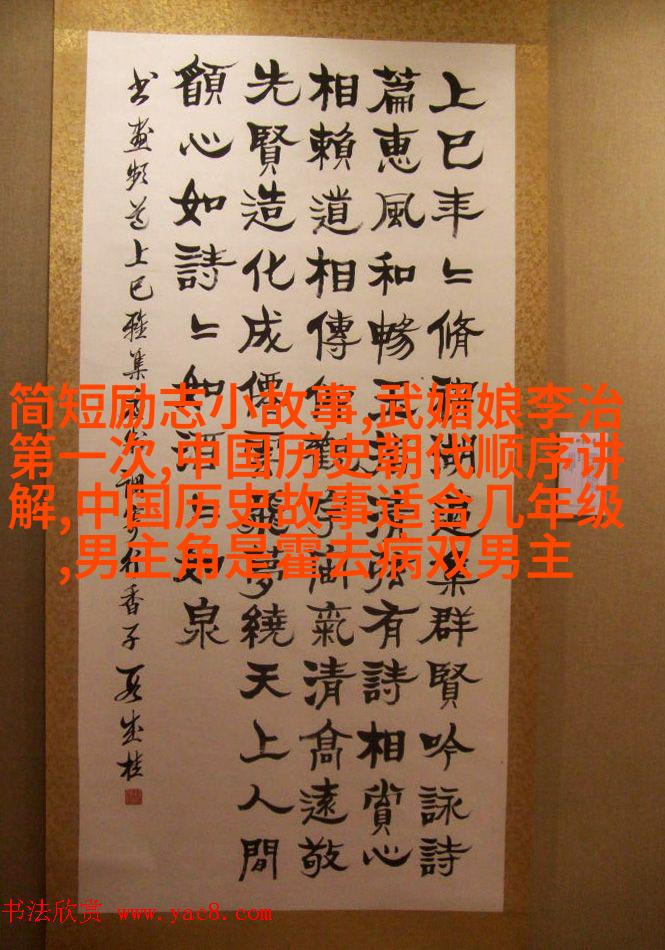 上巳年〻脩禊湖邊集群賢吟詠詩
篇惠風和暢有詩相賞心
相賴道相傳氣清高遠敬
先賢造化成僊雲飛夢繞天上人間
願心如詩〻如酒〻如泉
书画频道上巳雅集調寄行香子
简短励志小故事,武媚娘李治
第一次,中国历史朝代顺序讲
解,中国历史故事适合几年级
,男主角是霍去病双男主
书法欣赏 www.yac8.com